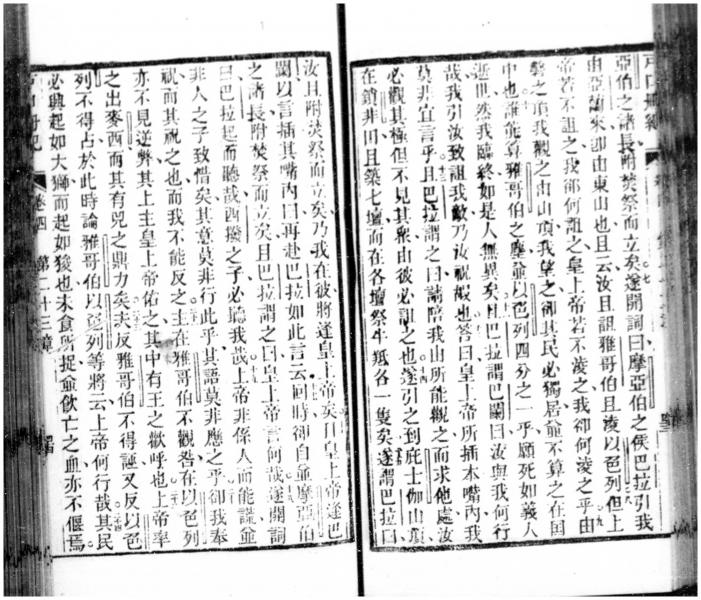 亞伯之諸長附焚祭而立矣遂開詞曰摩亞伯之侯巴拉引我
由亞蘭來卽由東山也且云汝且詛雅哥伯且淩以色列但上
帝若不詛之我卻何詛之皇上帝若不淩之我卻何淩之乎由
磐之頂我觀之由山頂我望之卻其民必獨居並不算之在国
中也誰能算雅哥伯之塵並以色列四分之一乎願死如義人
逝世然我臨終如是人無異矣且巴拉謂巴闌曰汝與我何行
哉我引汝致詛我敵乃汝祝嘏也答曰皇上帝所插本嘴內我
莫非宜言乎且巴拉謂之曰請陪我由所能觀之而求他處汝
必觀其極但不見其衆由彼必詛之也遂引之到庇士伽山頂
在鎖非田且築七壇而在各壇祭牛羝各一隻矣遂謂巴拉曰
汝且附焚祭而立矣乃我在彼將逢皇上帝矣且皇上帝逢巴
闌以言插其嘴內曰再赴巴拉如此言云回時卻自並摩亞伯
之諸長附焚祭而立矣且巴拉謂之曰皇上帝言何哉遂開詞
曰巴拉起而聽哉西撥之子必聽我哉上帝非係人而能謊並
非人之子致惜矣其意莫非行此乎其語莫非應之乎卻我奉
祝而其祝之也而我不能反之主在雅哥伯不觀咎在以色列
亦不見逆弊其上主皇上帝佑之其中有王之歡呼也上帝率
之出麥西而其有兕之鼎力矣夫反雅哥伯不得誣又反以色
列不得占於此時論雅哥伯以色列等將云上帝何行哉其民
必興起如大獅而起如狻也未食所捉並飲亡之血亦不偃焉
卷四 第二十三章